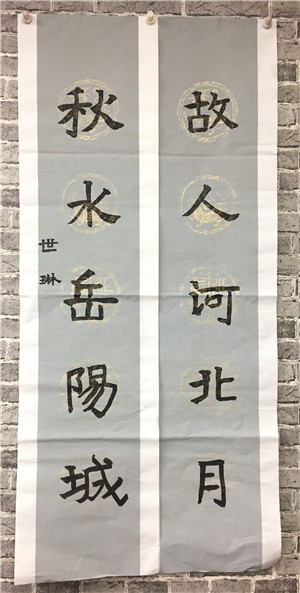 故人河北月
秋水岳陽城
世琳